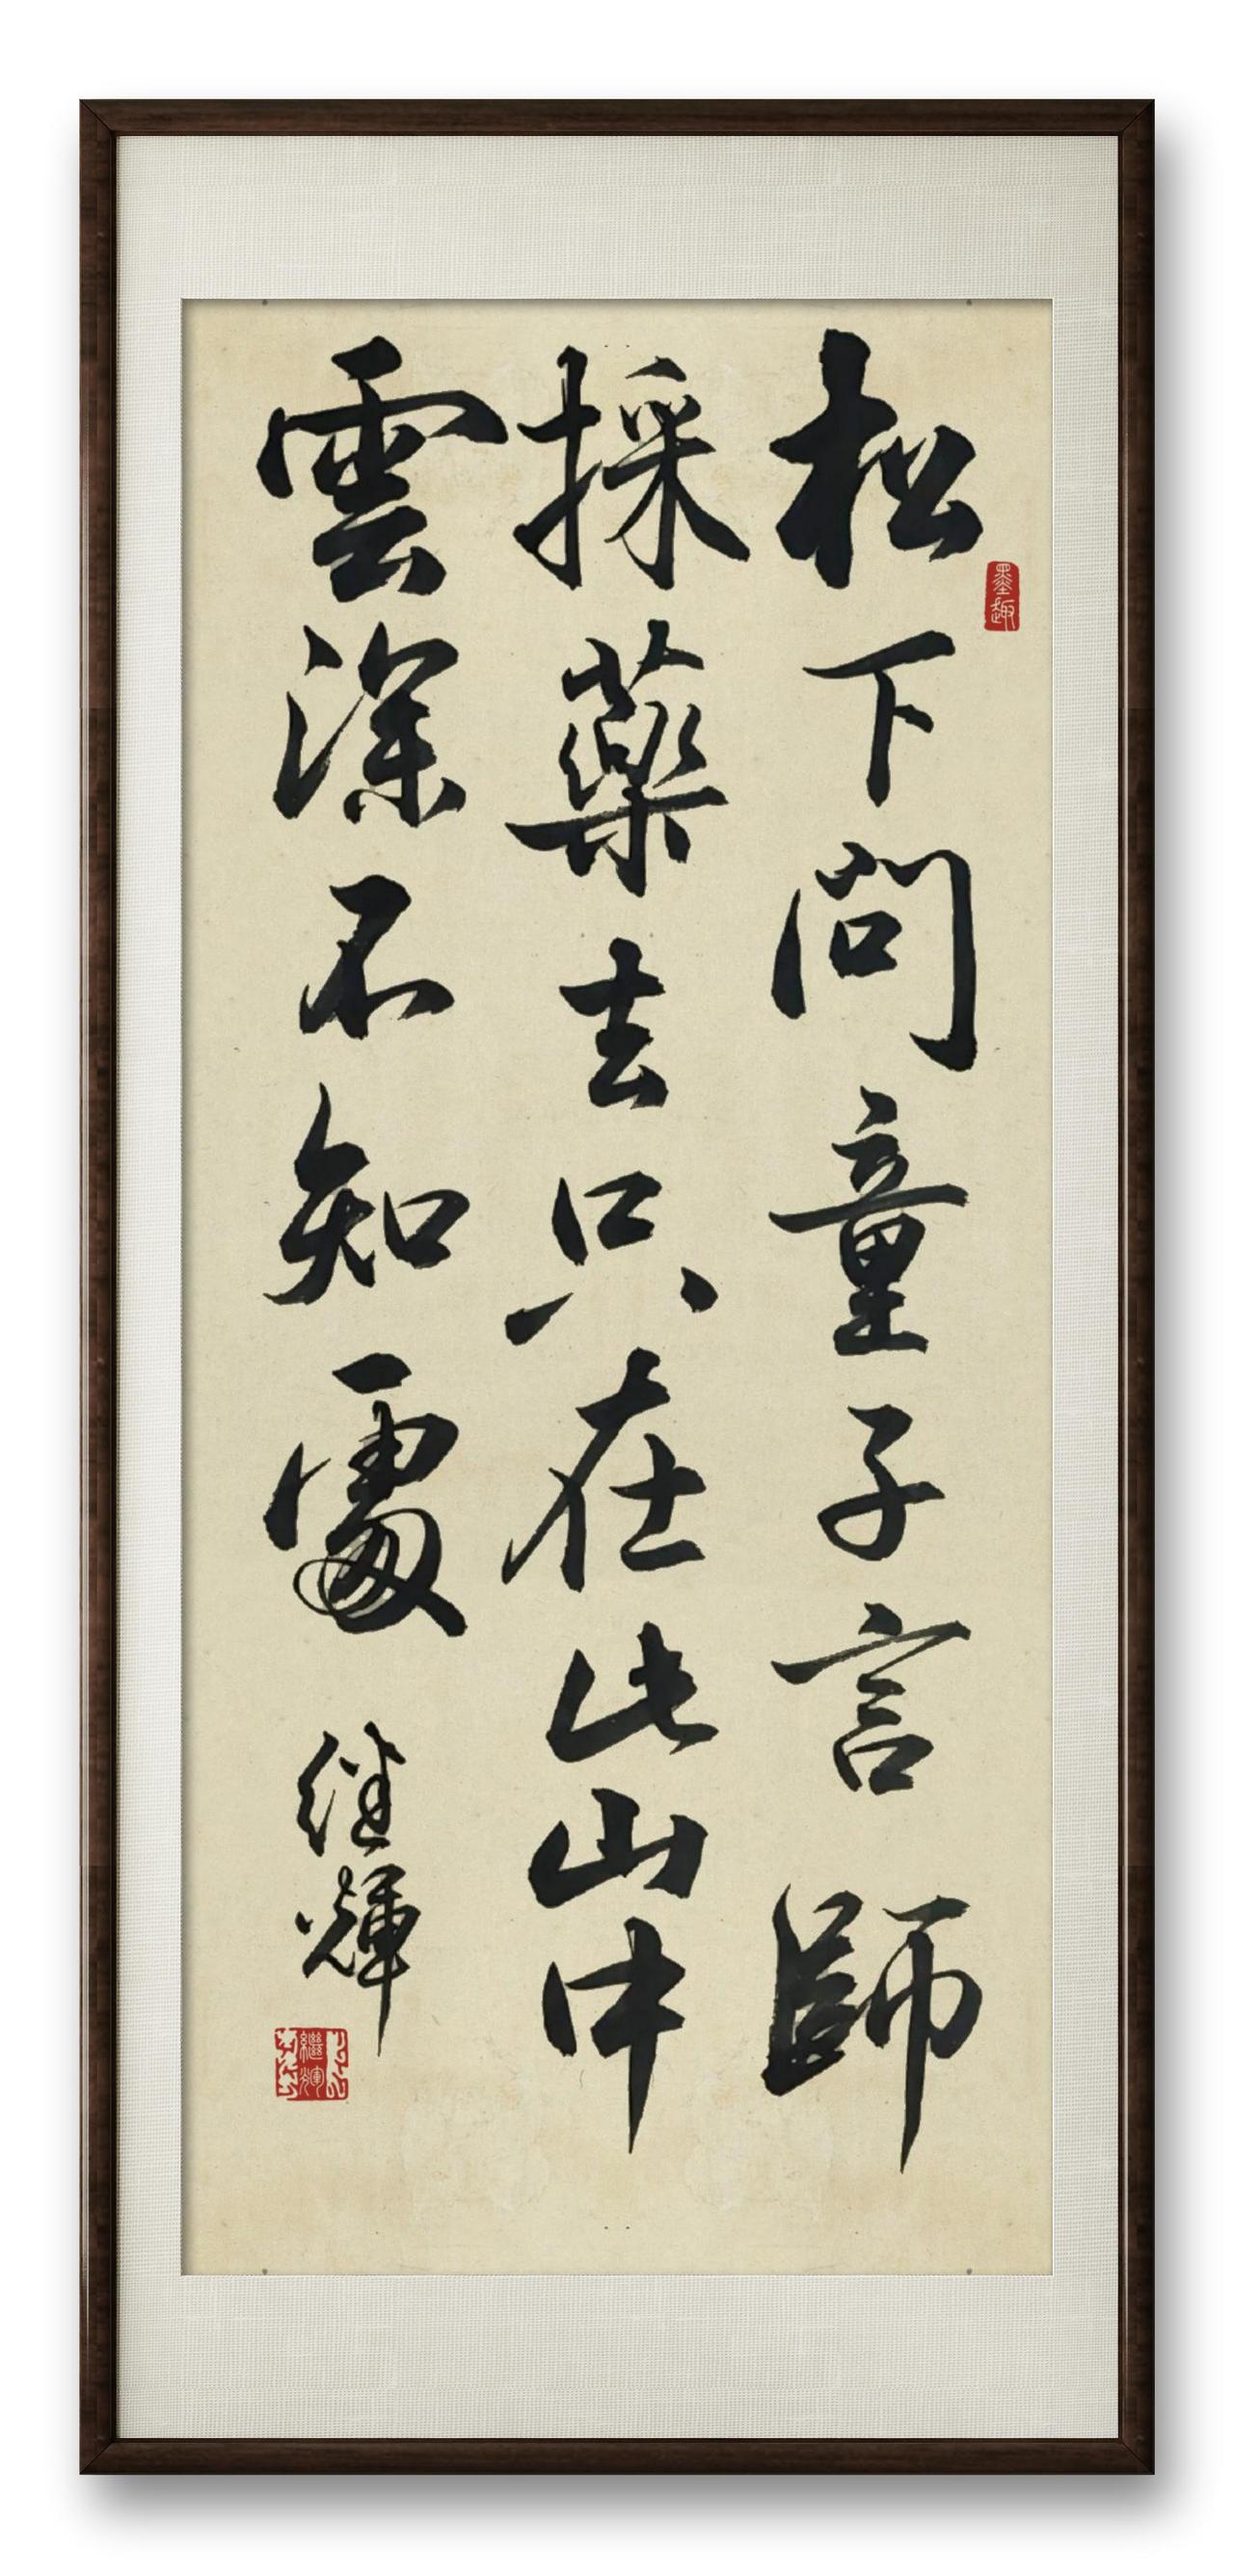 松下問童子言師
採藥去只在此山中
雲深不知處
继輝
墨趣
繼輝